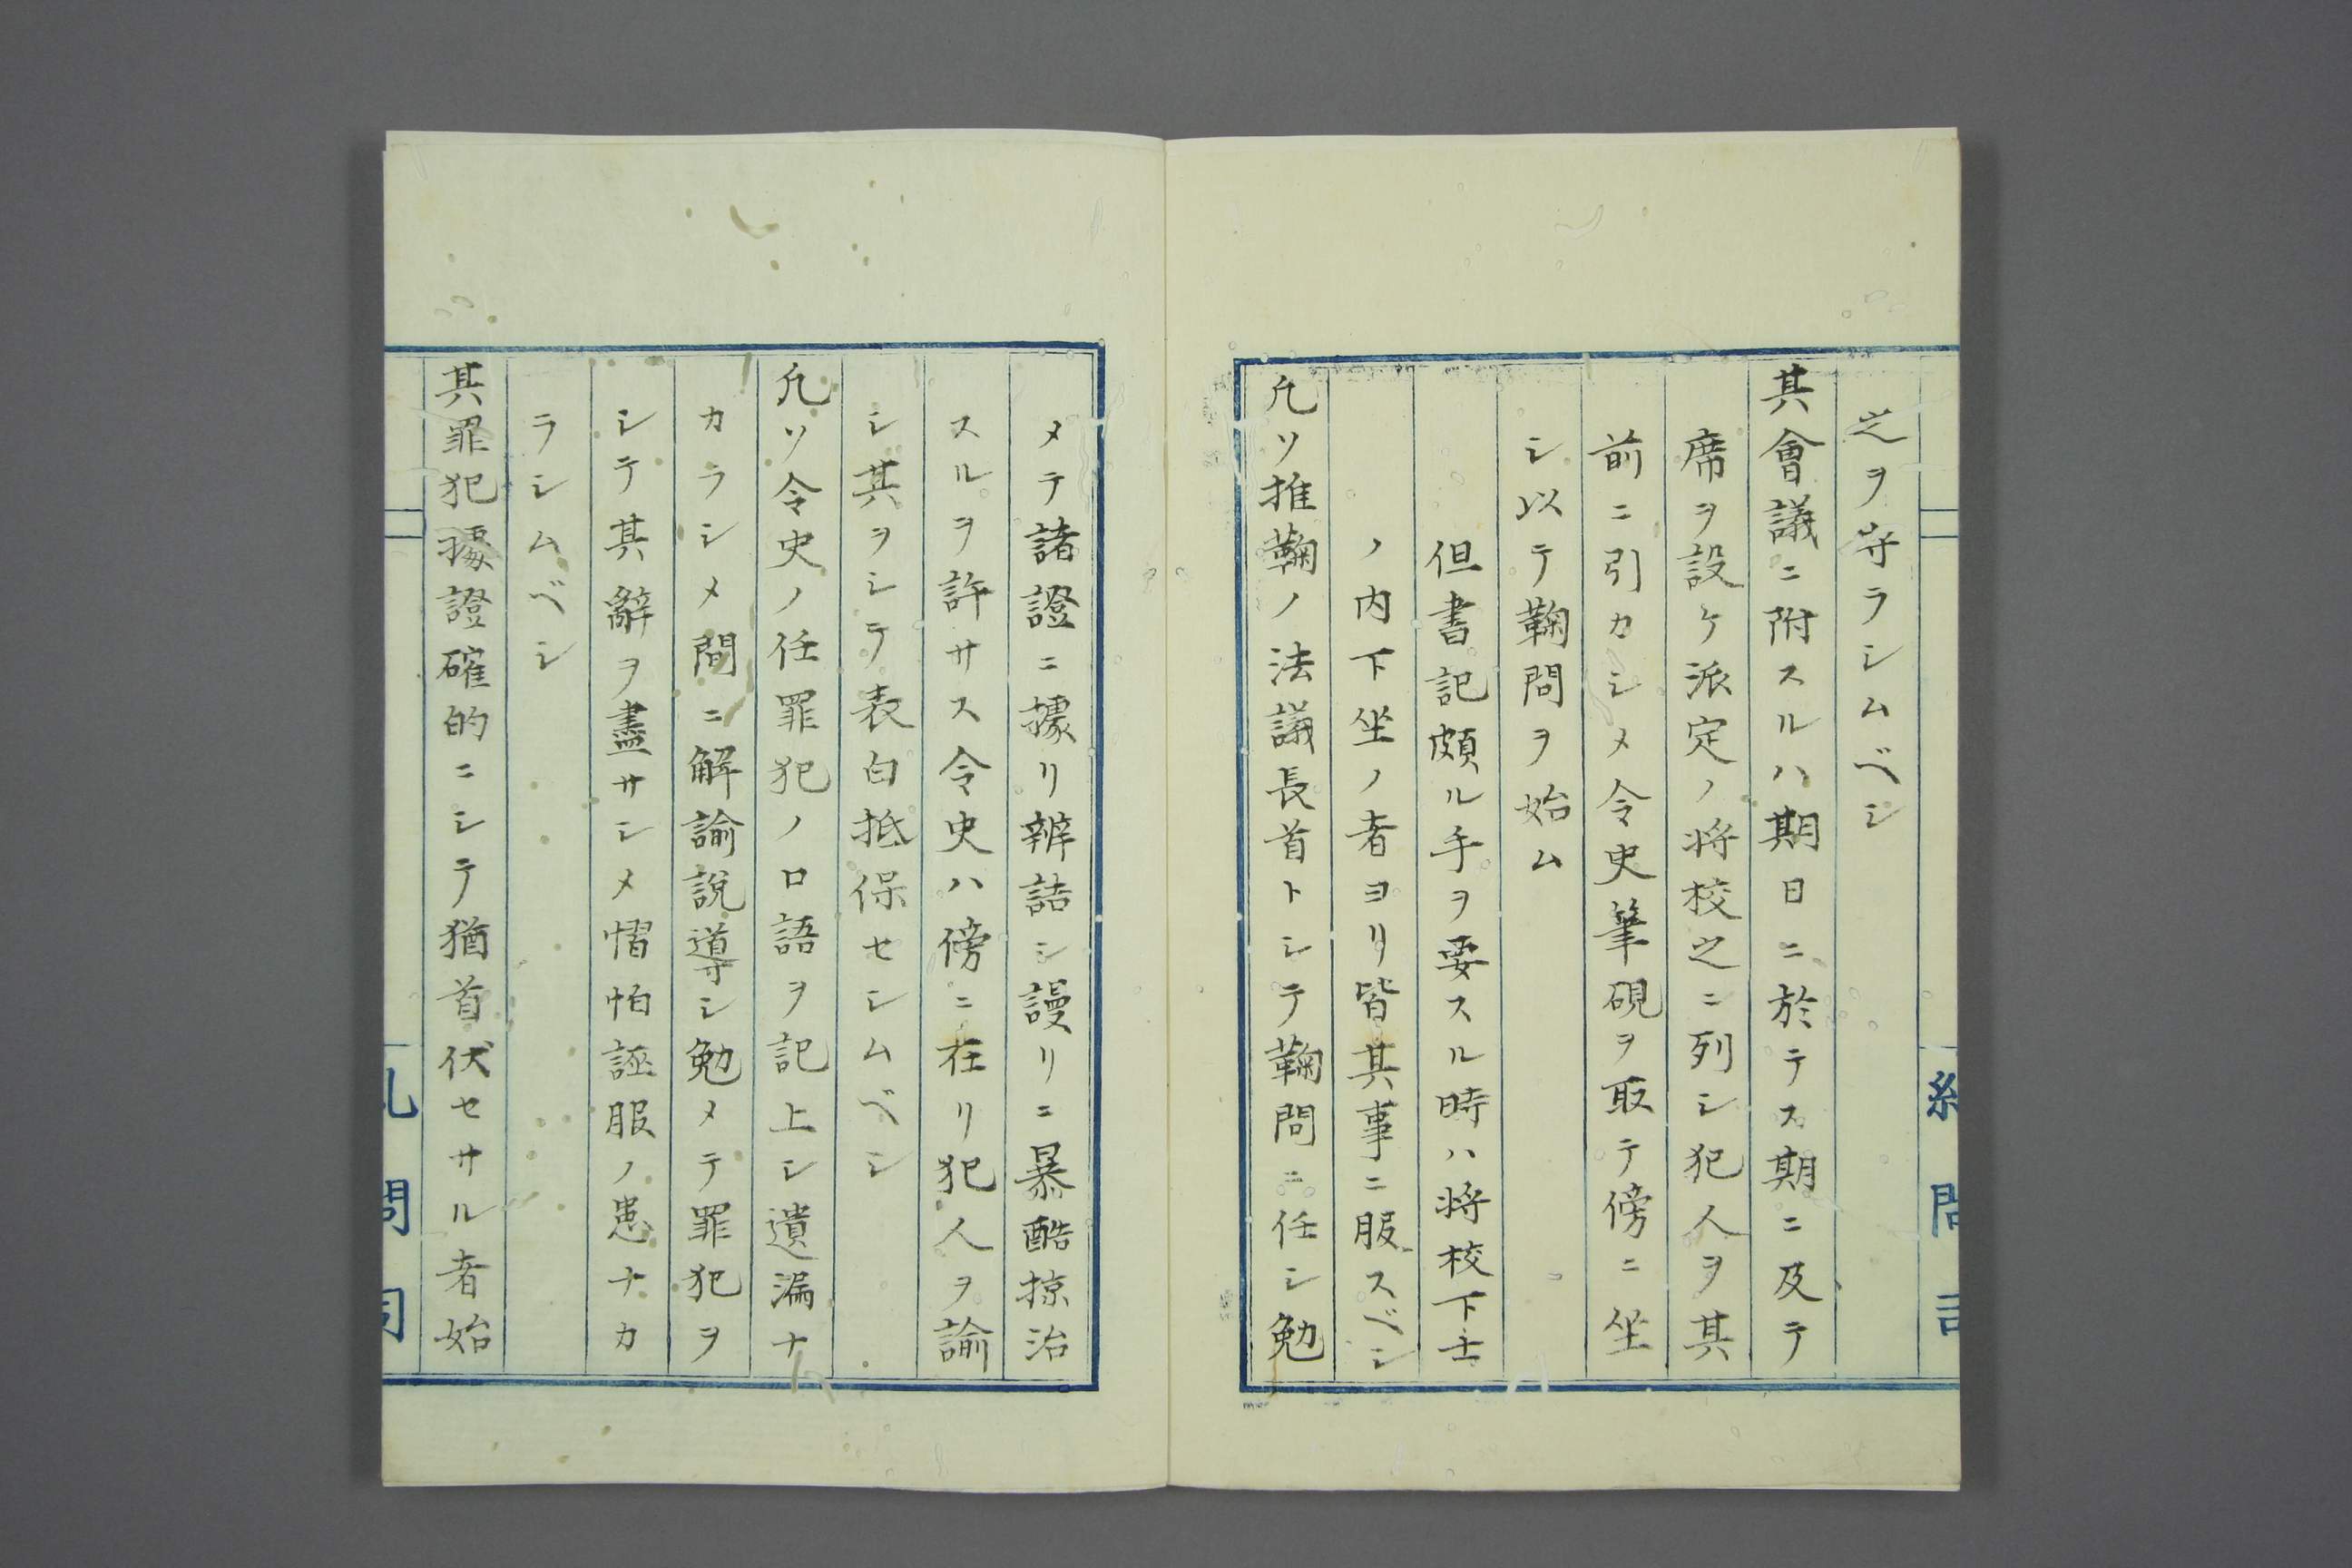 之ヲ守ラシムベシ
其會議ニ附スルハ期日ニ於テス期ニ及テ
席ヲ設ケ派定ノ将校之ニ列シ犯人ヲ其
前ニ引カシメ令史筆硯ヲ取テ傍ニ坐
シ以テ鞠問ヲ始ム
但書記頗ル手ヲ要スル時ハ将校下士
ノ内下坐ノ者ヨリ皆其事ニ服スベシ
凡ソ推鞠ノ法議長首トシテ鞠問ニ任シ勉
メテ諸證ニ據リ辨詰シ謾リニ暴酷掠治
スルヲ許サス令史ハ傍ニ在リ犯人ヲ諭
シ其ヲシテ表白抵保セシムベシ
凡ソ令史ノ任罪犯ノ口語ヲ記上シ遺漏ナ
カラシメ間ニ解諭説導シ勉メテ罪犯ヲ
シテ其辭ヲ盡サシメ慴怕誣服ノ患ナカ
ラシムベシ
其罪犯據證確的ニシテ猶首伏セサル者始